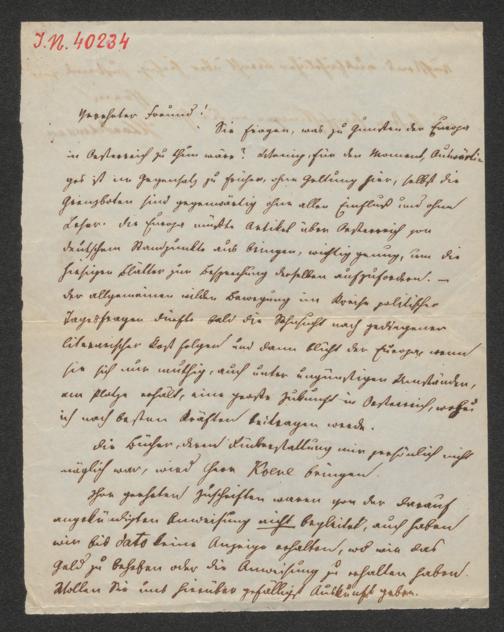 J.N. 40234
Verehrter Freund!
Sie fragen, was zu Gunsten der Europa
in Oesterreich zu thun wäre? Wenig, für den Moment. Auswärti-
ges ist im Gegensatz zu früher, ohne Geltung hier, selbst die
Grenzboten sind gegenwärtig ohne allen Einfluß und ohne
Leser. Die Europa müßte Artikel über Oesterreich vom
deutschem Standpunkte aus bringen, wichtig genug, um die
hiesigen Blätter zur Besprechung derselben aufzufordern. —
Der allgemeinen wilden Bewegung im Kreise politischer
Tagesfragen dürfte bald die Sehnsucht nach gediegener
literarischer Kost folgen und dann blüht der Europa, wenn
sie sich nur muthig, auch unter ungünstigen Umständen,
am Platze erhält, eine große Zukunft in Oesterreich, wobei
ich nach besten Kräften beitragen werde.
Die Bücher, deren Rückerstattung mir persönlich nicht
möglich war, wird Herr bringen.
Ihre geehrten Zuschriften waren von der darauf
angekündigten Anweisung nicht begleitet, auch haben
wir bis dato keine Anzeige erhalten, wo wir das
Geld zu beheben oder die Anweisung zu erhalten haben.
Wollen Sie uns hierüber gefälligst Auskunft geben.